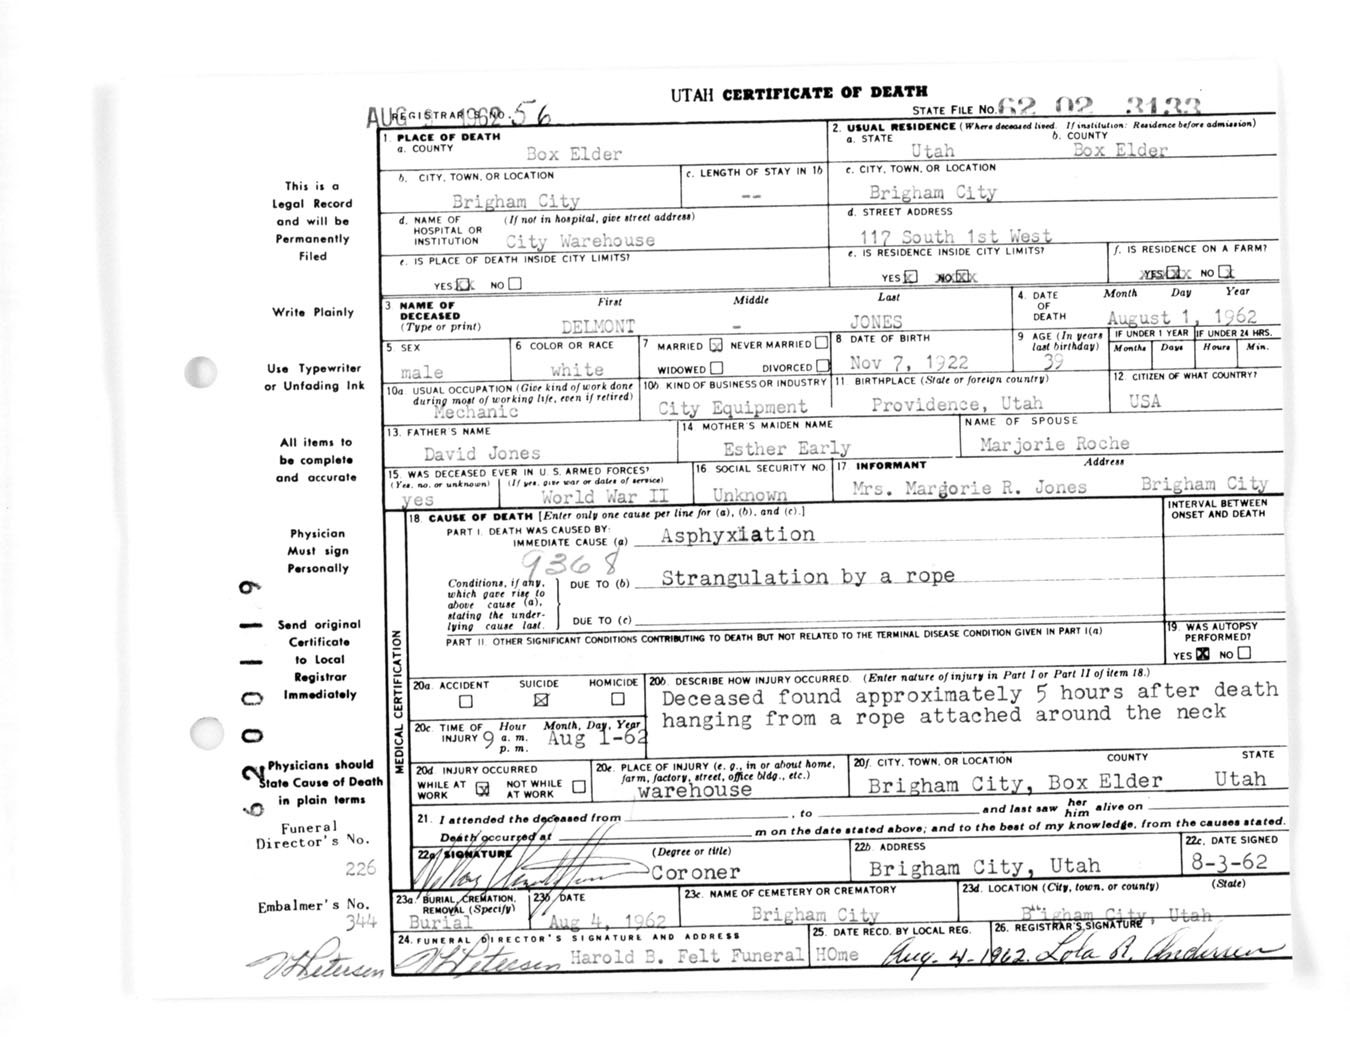 UTAH CERTIFICATE OF DEATH
AUG 1962 REGISTRAR'S NO. 56
STATE FILE NO. 62 02 3133
This is a Legal Record and will be Permanently Filed
Write Plainly
Use Typewriter or Unfading Ink
All items to be complete and accurate
Physician Must sign Personally
Send original Certificate to Local Registrar Immediately
Physicians should State Cause of Death in plain terms
Funeral Director's No.
226
Embalmer's No.
344
1. PLACE OF DEATH
a. COUNTY
Box Elder
2. USUAL RESIDENCE (Where deceased lived. If institution: Residence before admission)
a. STATE
Utah
b. COUNTY
Box Elder
b. CITY, TOWN, OR LOCATION
Brigham City
c. LENGTH OF STAY IN 1b
--
c. CITY, TOWN, OR LOCATION
Brigham City
d. NAME OF HOSPITAL OR INSTITUTION (If not in hospital, give street address)
City Warehouse
d. STREET ADDRESS
117 South 1st West
e. IS PLACE OF DEATH INSIDE CITY LIMITS?
YES NO
e. IS RESIDENCE INSIDE CITY LIMITS?
YES NO
f. IS RESIDENCE ON A FARM?
YES NO
3 NAME OF DECEASED (Type or print)
First Middle Last
DELMONT - JONES
4. DATE OF DEATH
Month Day Year
August 1, 1962
5 SEX
male
6 COLOR OR RACE
white
7 MARRIED NEVER MARRIED
WIDOWED DIVORCED
8 DATE OF BIRTH
Nov 7, 1922
9 AGE (In years last birthday)
39
IF UNDER 1 YEAR
Months Days
IF UNDER 24 HRS.
Hours Min.
10a. USUAL OCCUPATION (Give kind of work done during most of working life, even if retired)
Mechanic
10b. KIND OF BUSINESS OR INDUSTRY
City Equipment
11 BIRTHPLACE (State or foreign country)
Providence, Utah
12 CITIZEN OF WHAT COUNTRY?
USA
13. FATHER'S NAME
David Jones
14 MOTHER'S MAIDEN NAME
Esther Early
NAME OF SPOUSE
Marjorie Roche
15. WAS DECEASED EVER IN U. S. ARMED FORCES?
(Yes, no, or unknown) (If yes, give war or dates of service)
yes World War II
16 SOCIAL SECURITY NO.
Unknown
17 INFORMANT Address
Mrs. Margorie R. Jones Brigham City
MEDICAL CERTIFICATION
18. CAUSE OF DEATH [Enter only one cause per line for (a), (b), and (c).]
INTERVAL BETWEEN ONSET AND DEATH
PART I. DEATH WAS CAUSED BY:
IMMEDIATE CAUSE (a) Asphyxiation
9368
Conditions, if any, which gave rise to above cause (a), stating the underlying cause last.
DUE TO (b) Strangulation by a rope
DUE TO (c)
PART II. OTHER SIGNIFICANT CONDITIONS CONTRIBUTING TO DEATH BUT NOT RELATED TO THE TERMINAL DISEASE CONDITION GIVEN IN PART I(a)
19. WAS AUTOPSY PERFORMED?
YES NO
20a. ACCIDENT SUICIDE HOMICIDE
20b. DESCRIBE HOW INJURY OCCURRED. (Enter nature of injury in Part I or Part II of item 18.)
Deceased found approximately 5 hours after death
hanging from a rope attached around the neck
20c. TIME OF INJURY Hour Month, Day, Year
9 a. m. p. m. Aug 1-62
20d. INJURY OCCURRED
WHILE AT WORK NOT WHILE AT WORK
20e. PLACE OF INJURY (e. g., in or about home, farm, factory, street, office bldg., etc.)
warehouse
20f. CITY, TOWN, OR LOCATION COUNTY STATE
Brigham City, Box Elder Utah
21. I attended the deceased from , to and last saw her him alive on
Death occurred at m on the date stated above; and to the best of my knowledge, from the causes stated.
22a. SIGNATURE (Degree or title)
Coroner
22b. ADDRESS
Brigham City, Utah
22c. DATE SIGNED
8-3-62
23a. BURIAL, CREMATION, REMOVAL (Specify)
Burial
23b. DATE
Aug 4, 1962
23c. NAME OF CEMETERY OR CREMATORY
Brigham City
23d. LOCATION (City, town, or county) (State)
Brigham City, Utah
24. FUNERAL DIRECTOR'S SIGNATURE AND ADDRESS
Petersen Harold B. Felt Funeral HOme
25. DATE RECD. BY LOCAL REG.
Aug. 4-1962
26. REGISTRAR'S SIGNATURE
Lola R. Andersen
Petersen